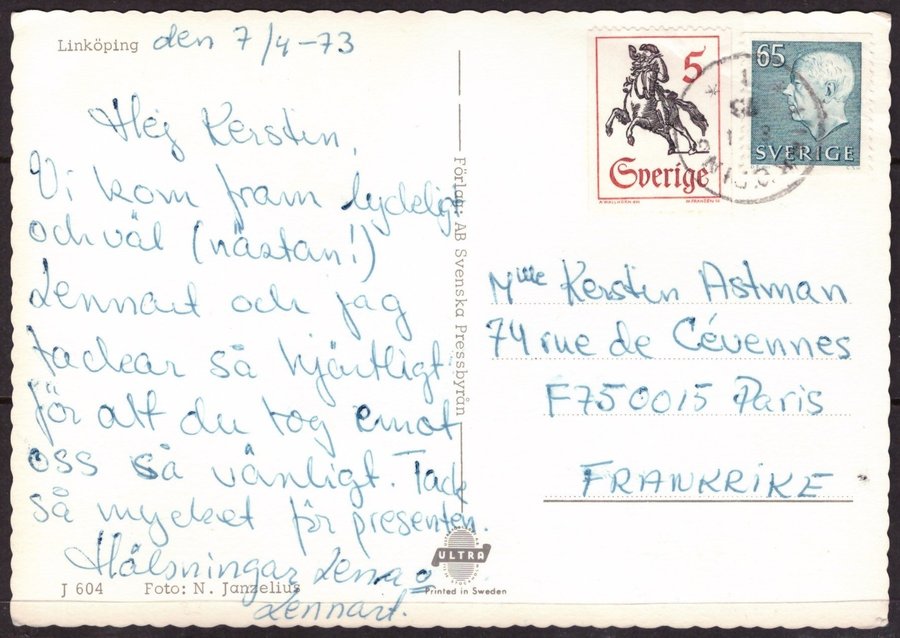 Linköping den 7/4-73
Hej Kerstin,
Vi kom fram lydelig
och väl (nästan!)
Lennart och jag
tackar så hjärtligt
för att du tog emot
oss så vänligt. Tack
så mycket för presenten.
Hälsningar Lena o
Lennart.
J 604 Foto: N. Janzelius
Förlag: AB Svenska Pressbyrån
ULTRA
Printed in Sweden
5
Sverige
65
SVERIGE
Mlle Kerstin Astman
74 rue de Cévennes
F750015 Paris
FRANKRIKE